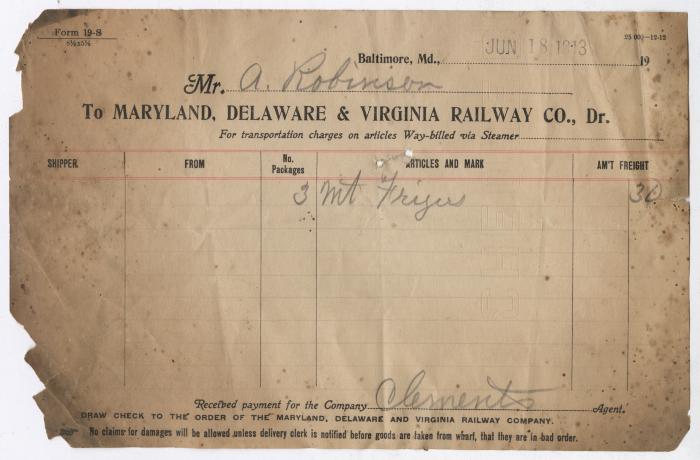 Form 19-S
5½x8½
25 000-12-12
JUN 18 1913
Baltimore, Md., 19
Mr. A. Robinson
To MARYLAND, DELAWARE & VIRGINIA RAILWAY CO., Dr.
For transportation charges on articles Way-billed via Steamer
SHIPPER FROM No. Packages ARTICLES AND MARK AM'T FREIGHT
3 Mt 30
Received payment for the Company Clements Agent.
DRAW CHECK TO THE ORDER OF THE MARYLAND, DELAWARE AND VIRGINIA RAILWAY COMPANY.
No claims for damages will be allowed unless delivery clerk is notified before goods are taken from wharf, that they are in bad order.